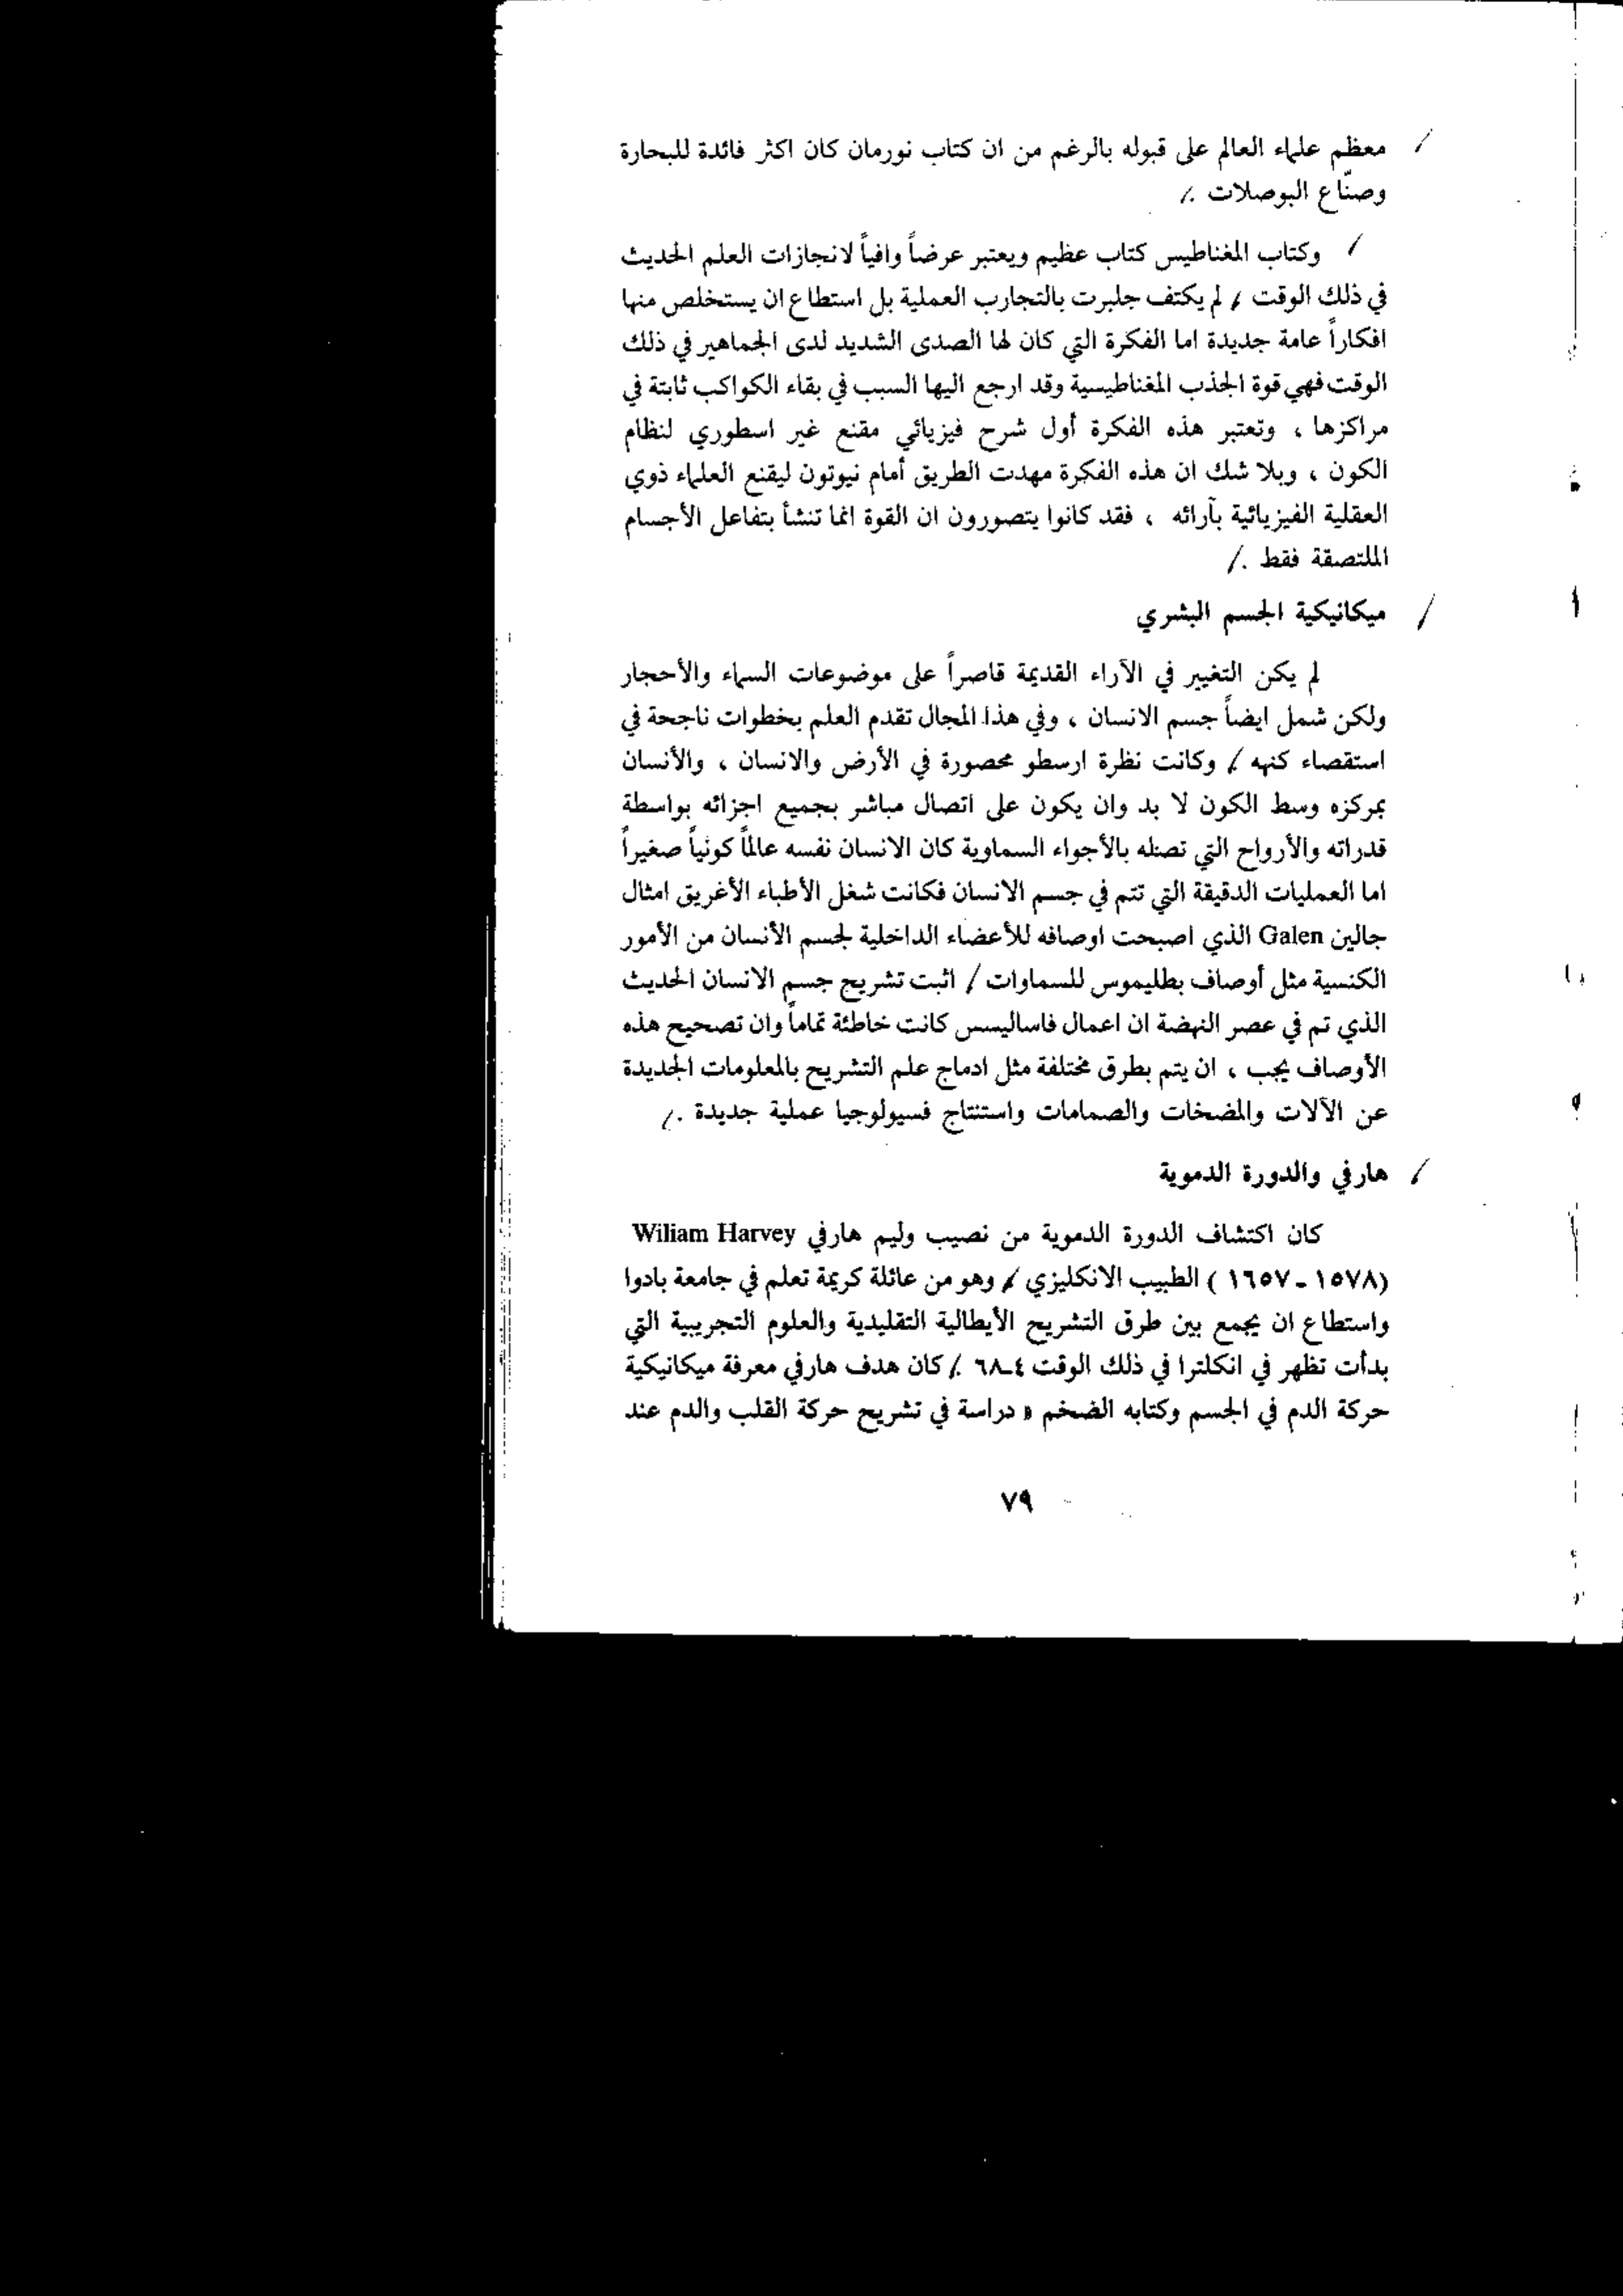 معظم علماء العالم على قبوله بالرغم من ان كتاب نورمان كان اكثر فائدة للبحارة
وصنّاع البوصلات ./
/ وكتاب المغناطيس كتاب عظيم ويعتبر عرضاً وافياً لانجازات العلم الحديث
في ذلك الوقت / لم يكتف جلبرت بالتجارب العملية بل استطاع ان يستخلص منها
افكاراً عامة جديدة اما الفكرة التي كان لها الصدى الشديد لدى الجماهير في ذلك
الوقت فهي قوة الجذب المغناطيسية وقد ارجع اليها السبب في بقاء الكواكب ثابتة في
مراكزها ، وتعتبر هذه الفكرة أول شرح فيزيائي مقنع غير اسطوري لنظام
الكون ، وبلا شك ان هذه الفكرة مهدت الطريق أمام نيوتون ليقنع العلماء ذوي
العقلية الفيزيائية بآرائه ، فقد كانوا يتصورون ان القوة انما تنشأ بتفاعل الأجسام
الملتصقة فقط ./
/ ميكانيكية الجسم البشري
لم يكن التغيير في الآراء القديمة قاصراً على موضوعات السماء والأحجار
ولكن شمل ايضاً جسم الانسان ، وفي هذا المجال تقدم العلم بخطوات ناجحة في
استقصاء كنهه / وكانت نظرة ارسطو محصورة في الأرض والانسان ، والأنسان
بمركزه وسط الكون لا بد وان يكون على اتصال مباشر بجميع اجزائه بواسطة
قدراته والأرواح التي تصله بالأجواء السماوية كان الانسان نفسه عالماً كونياً صغيراً
اما العمليات الدقيقة التي تتم في جسم الانسان فكانت شغل الأطباء الأغريق امثال
جالين Galen الذي اصبحت اوصافه للأعضاء الداخلية لجسم الأنسان من الأمور
الكنسية مثل أوصاف بطليموس للسماوات / اثبت تشريح جسم الانسان الحديث
الذي تم في عصر النهضة ان اعمال فاساليسس كانت خاطئة تماماً وان تصحيح هذه
الأوصاف يجب ، ان يتم بطرق مختلفة مثل ادماج علم التشريح بالمعلومات الجديدة
عن الآلات والمضخات والصمامات واستنتاج فسيولوجيا عملية جديدة ./
/ هارفي والدورة الدموية
كان اكتشاف الدورة الدموية من نصيب وليم هارفي Wiliam Harvey
(١٥٧٨ - ١٦٥٧ ) الطبيب الانكليزي / وهو من عائلة كريمة تعلم في جامعة بادوا
واستطاع ان يجمع بين طرق التشريح الأيطالية التقليدية والعلوم التجريبية التي
بدأت تظهر في انكلترا في ذلك الوقت ٤ـ٦٨ ./ كان هدف هارفي معرفة ميكانيكية
حركة الدم في الجسم وكتابه الضخم « دراسة في تشريح حركة القلب والدم عند
٧٩